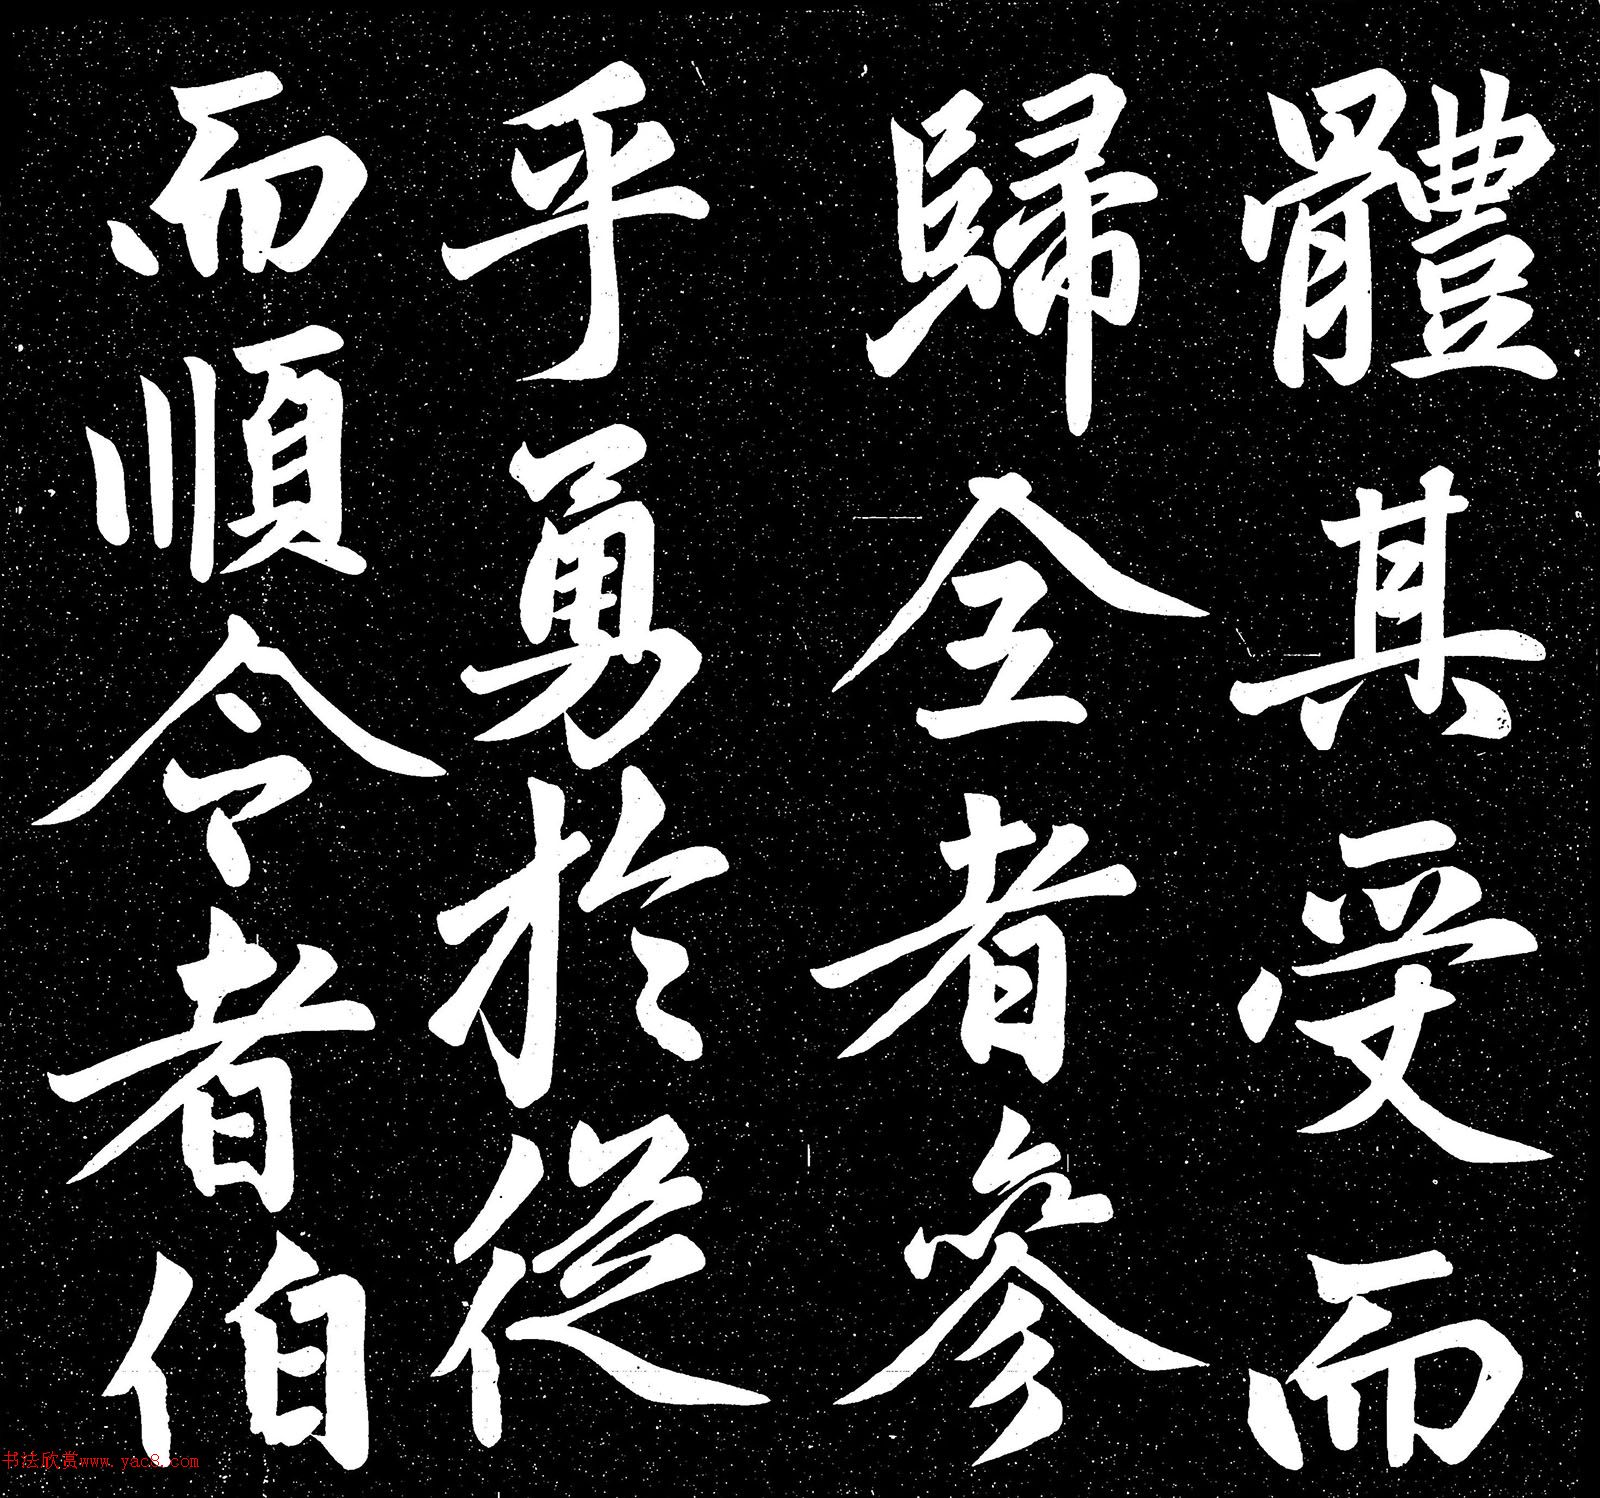 體其受而
歸全者參
乎勇於從
而順令者伯
书法欣赏www.yac8.com